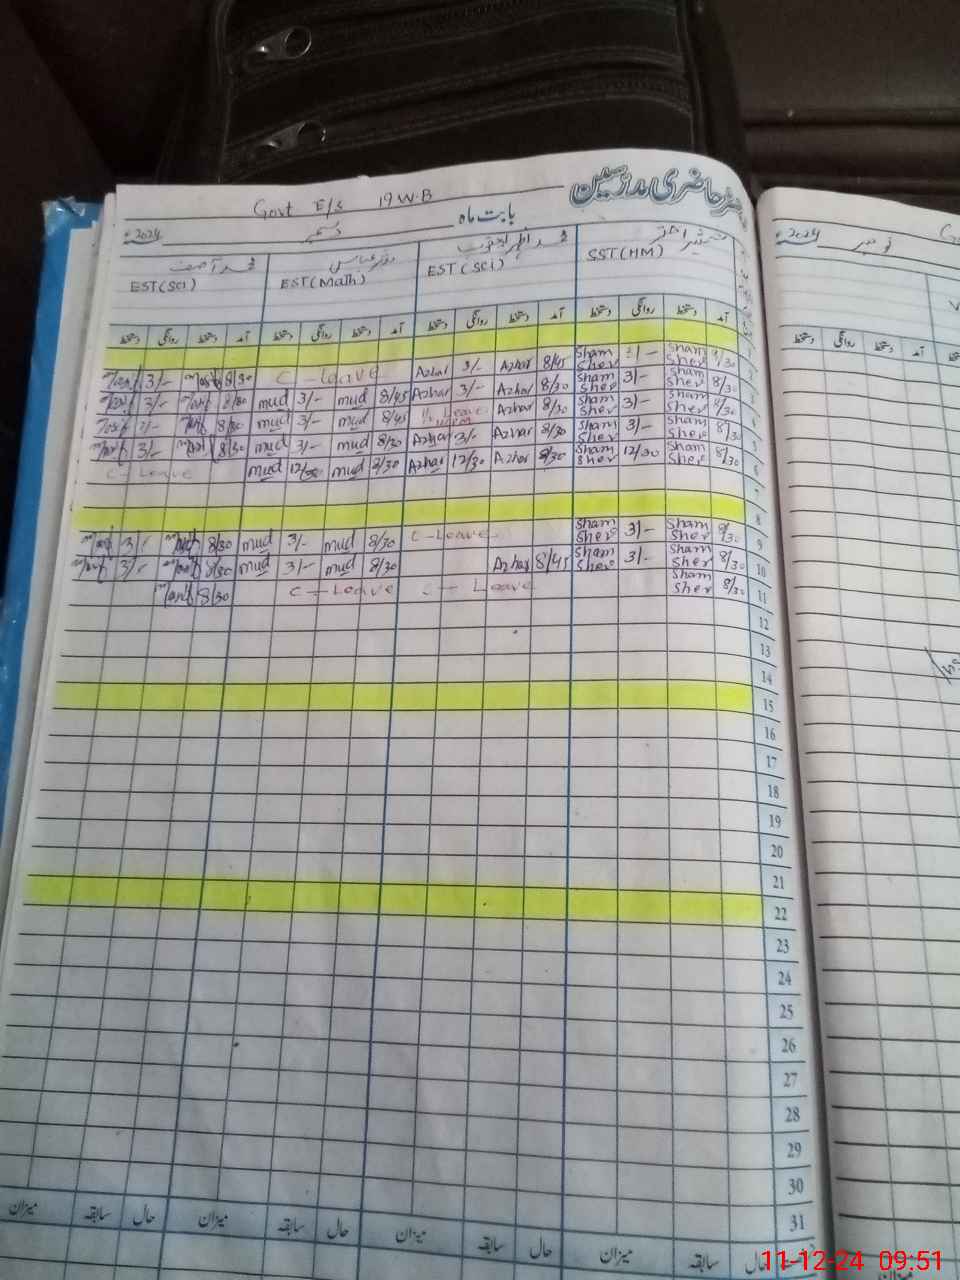 رجسٹر حاضری مدرسین
Govt E/S 19 W.B
بابت ماہ دسمبر 2024ء
شمشیر اختر
SST (HM)
محمد اظہر یعقوب
EST (SCI)
مدثر عباس
EST (Math)
محمد آصف
EST (SCI)
آمد دستخط روانگی دستخط آمد دستخط روانگی دستخط آمد دستخط روانگی دستخط آمد دستخط روانگی دستخط
1
3/- 8/30 C-Leave Azhar 3/- Azhar 8/45 Sham Sher 3/- Sham Sher 8/30 2
3/- 8/30 mud 3/- mud 8/45 Azhar 3/- Azhar 8/30 Sham Sher 3/- Sham Sher 8/30 3
8/30 mud 3/- mud 8/45 Leave Azhar 8/30 Sham Sher 3/- Sham Sher 8/30 4
3/- 8/30 mud 3/- mud 8/30 Azhar 3/- Azhar 8/30 Sham Sher 3/- Sham Sher 8/30 5
C-Leave mud 12/30 mud 8/30 Azhar 12/30 Azhar 8/30 Sham Sher 12/30 Sham Sher 8/30 6
7
8
8/30 mud 3/- mud 8/30 C-Leave Sham Sher 3/- Sham Sher 8/30 9
8/30 mud 3/- mud 8/30 Azhar 8/45 Sham Sher 3/- Sham Sher 8/30 10
8/30 C-Leave C-Leave Sham Sher 8/30 11
12
13
14
15
16
17
18
19
20
21
22
23
24
25
26
27
28
29
30
31
حال سابقہ میزان حال سابقہ میزان حال سابقہ میزان حال سابقہ میزان
2024ء نومبر
آمد دستخط روانگی دستخط
میزان
11-12-24 09:51